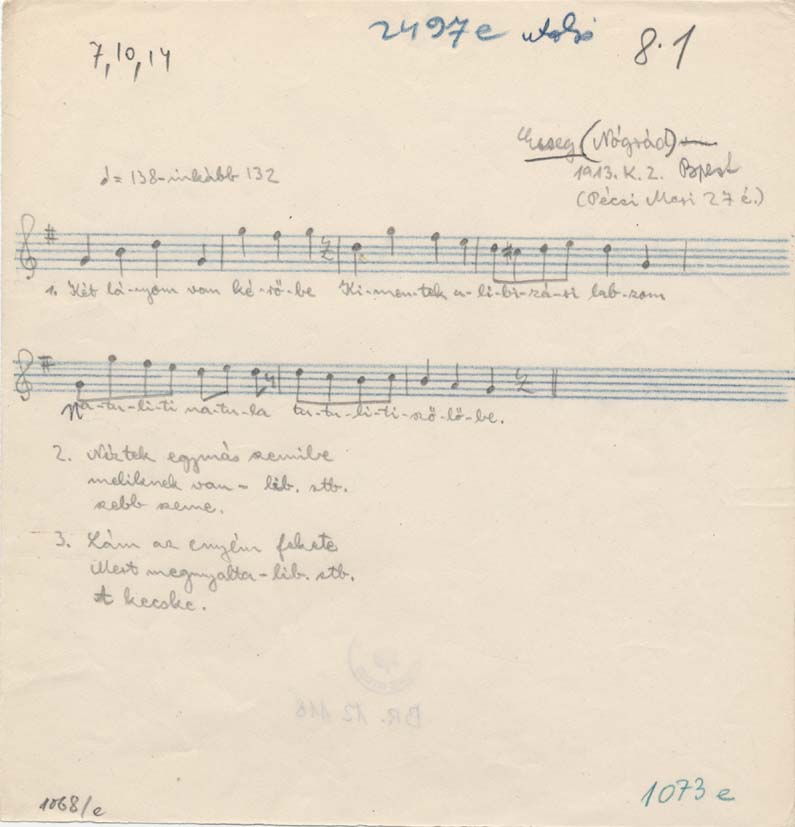 7, 10, 14
2497e utolsó
8.1
Esseg (Nógrád)
1913. K. Z. Bpest
(Pécsi Mari 27 é.)
♩ = 138-inkább 132
1. Két lá-nyom van ké-rő-be Ki-men-tek a-li-bi-zá-ri lab-zom
Na-tu-li-ti na-tu-la tu-tu-li-ti-sző-lő-be.
2. Néztek egymás szemibe
meliknek van - lib. stb.
szebb szeme.
3. Lám az enyém fekete
Mert megnyalta - lib. stb.
A kecske.
BR. 12 116
1068/e
1073 e